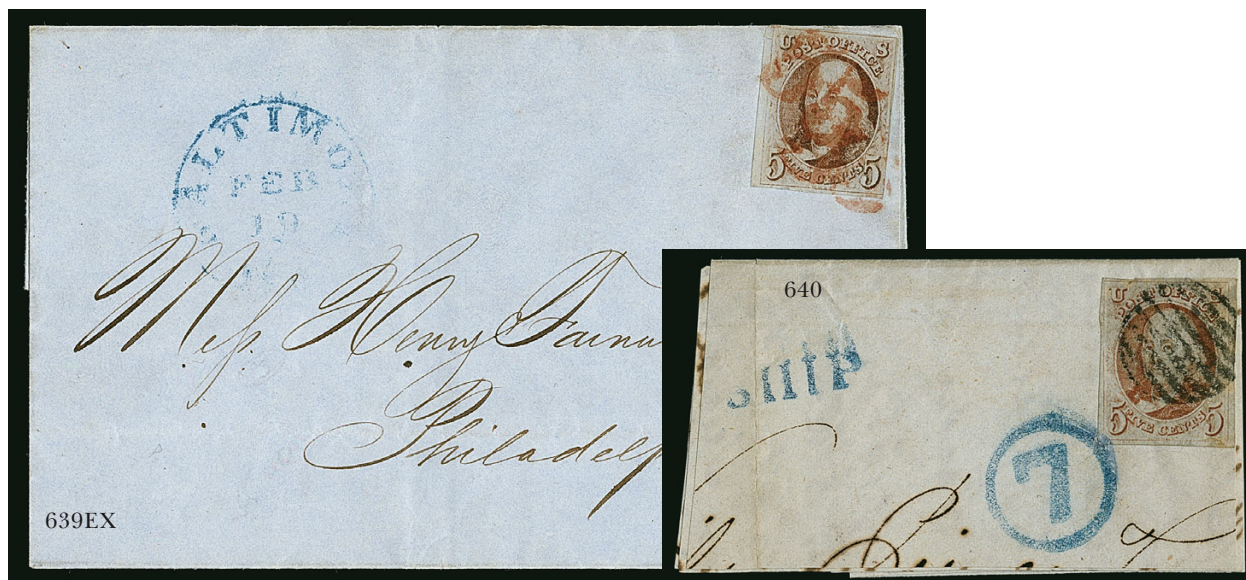 U S
POST OFFICE
5 FIVE CENTS 5
ALTIMO
FEB
19
Mess. Henry & Farnu
Philadelp
639EX
640
U S
POST OFFICE
5 FIVE CENTS 5
7